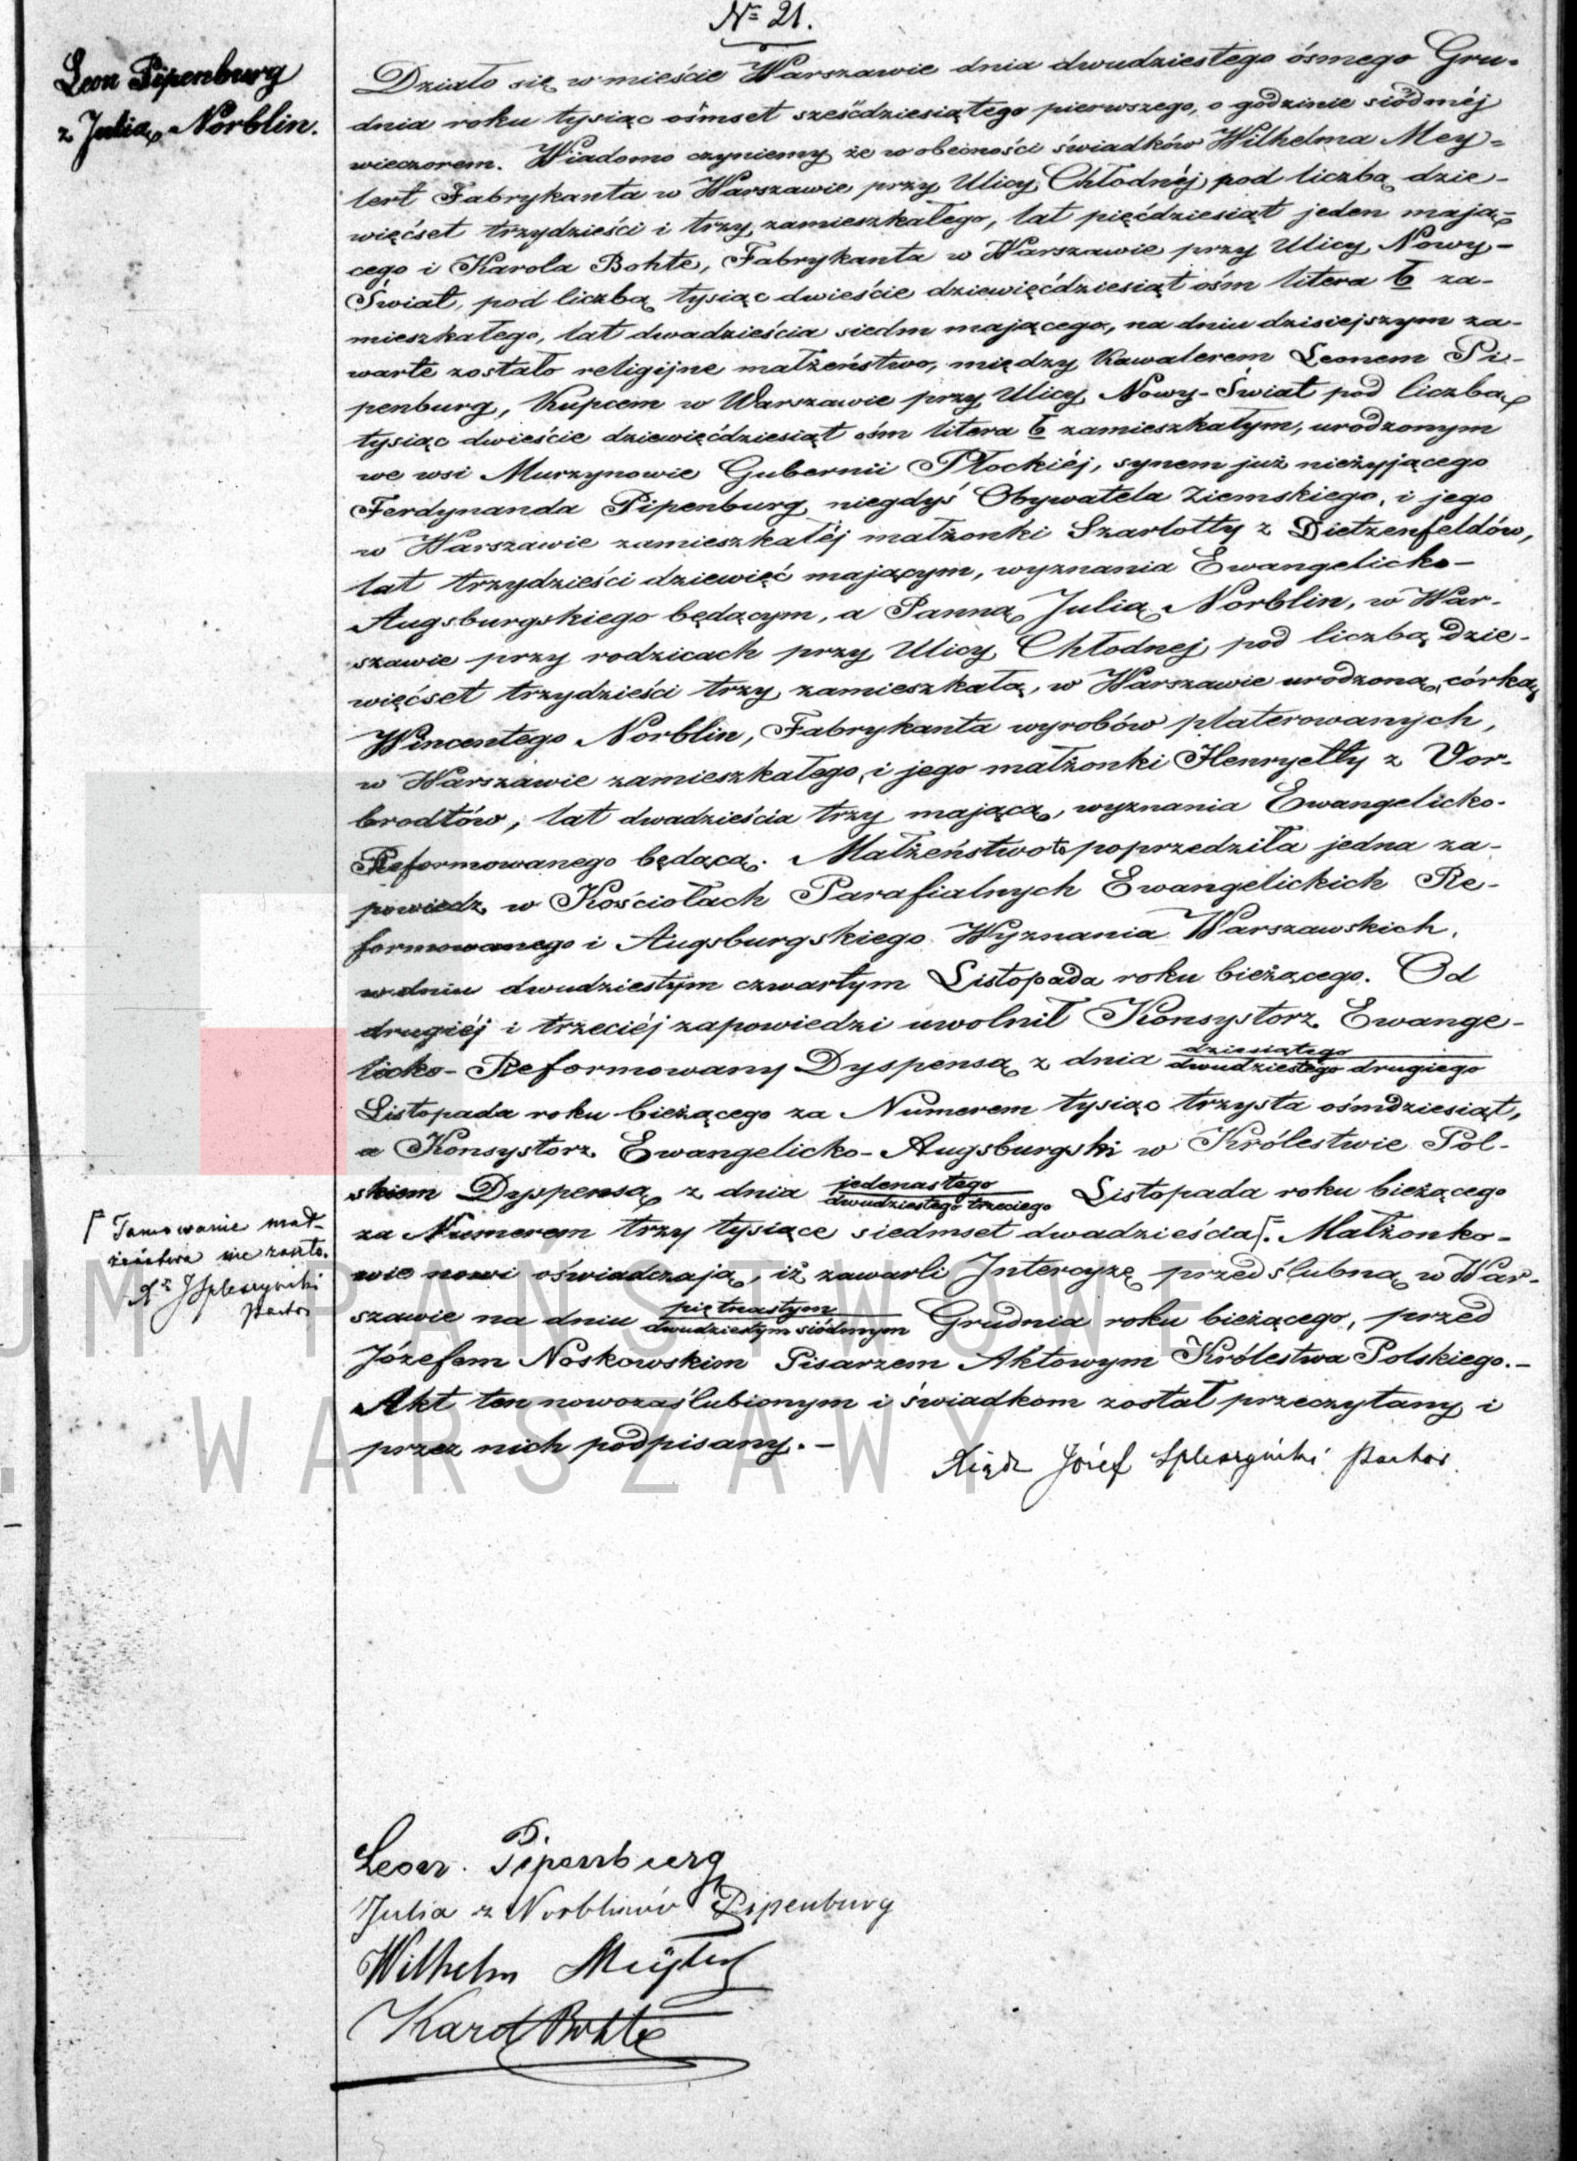 Nº 21.
Leon Pipenburg
z Julią Norblin.
Działo się w mieście Warszawie dnia dwudziestego ósmego Gru-
dnia roku tysiąc ośmset sześćdziesiątego pierwszego, o godzinie siódméj
wieczorem. Wiadomo czyniemy że w obecności świadków Wilhelma Mey-
lert Fabrykanta w Warszawie przy Ulicy Chłodnéj pod liczbą dzie-
więćset trzydzieści i trzy zamieszkałego, lat pięćdziesiąt jeden mają-
cego i Karola Bohte, Fabrykanta w Warszawie przy Ulicy Nowy-
Świat, pod liczbą tysiąc dwieście dziewięćdziesiąt ośm litera b za-
mieszkałego, lat dwadzieścia siedm mającego, na dniu dzisiejszym za-
warte zostało religijne małżeństwo, między Kawalerem Leonem Pi-
penburg, Kupcem w Warszawie przy Ulicy Nowy-Świat pod liczbą
tysiąc dwieście dziewięćdziesiąt ośm litera b zamieszkałym, urodzonym
we wsi Murzynowie Gubernii Płockiéj, synem już nieżyjącego
Ferdynanda Pipenburg niegdyś Obywatela Ziemskiego, i jego
w Warszawie zamieszkałéj małżonki Szarlotty z Dietzenfeldów,
lat trzydzieści dziewięć mającym, wyznania Ewangelicko-
Augsburgskiego będącym, a Panną Julią Norblin, w War-
szawie przy rodzicach przy Ulicy Chłodnej pod liczbą dzie-
więćset trzydzieści trzy zamieszkałą, w Warszawie urodzoną, córką
Wincentego Norblin, Fabrykanta wyrobów platerowanych,
w Warszawie zamieszkałego, i jego małżonki Henryetty z Vor-
brodtów, lat dwadzieścia trzy mającą, wyznania Ewangelicko-
Reformowanego będącą. Małżeństwo to poprzedziła jedna za-
powiedz w Kościołach Parafialnych Ewangelickich Re-
formowanego i Augsburgskiego Wyznania Warszawskich,
w dniu dwudziestym czwartym Listopada roku bieżącego. Od
drugiéj i trzeciéj zapowiedzi uwolnił Konsystorz Ewange-
licko-Reformowany Dyspensą z dnia dziesiątego
dwudziestego drugiego
Listopada roku bieżącego za Numerem tysiąc trzysta ośmdziesiąt,
a Konsystorz Ewangelicko-Augsburgski w Królestwie Pol-
skiem Dyspensą z dnia jedenastego
dwudziestego trzeciego Listopada roku bieżącego
za Numerem trzy tysiące siedmset dwadzieścia. Małżonko-
wie nowi oświadczają, iż zawarli Intercyzę przedślubną w War-
szawie na dniu piętnastym
dwudziestym siódmym Grudnia roku bieżącego, przed
Józefem Noskowskim Pisarzem Aktowym Królestwa Polskiego.-
Akt ten nowozaślubionym i świadkom został przeczytany i
przez nich podpisany.-
Ksiądz Józef Spleszyński Pastor
Tamowanie mał-
żeństwa nie zaszło.
Xº J Spleszyński
Pastor
Leon Pipenburg
Julia z Norblinów Pipenburg
Wilhelm Meylert
Karol Bohte
UM PAŃSTWOWE
WARSZAWY